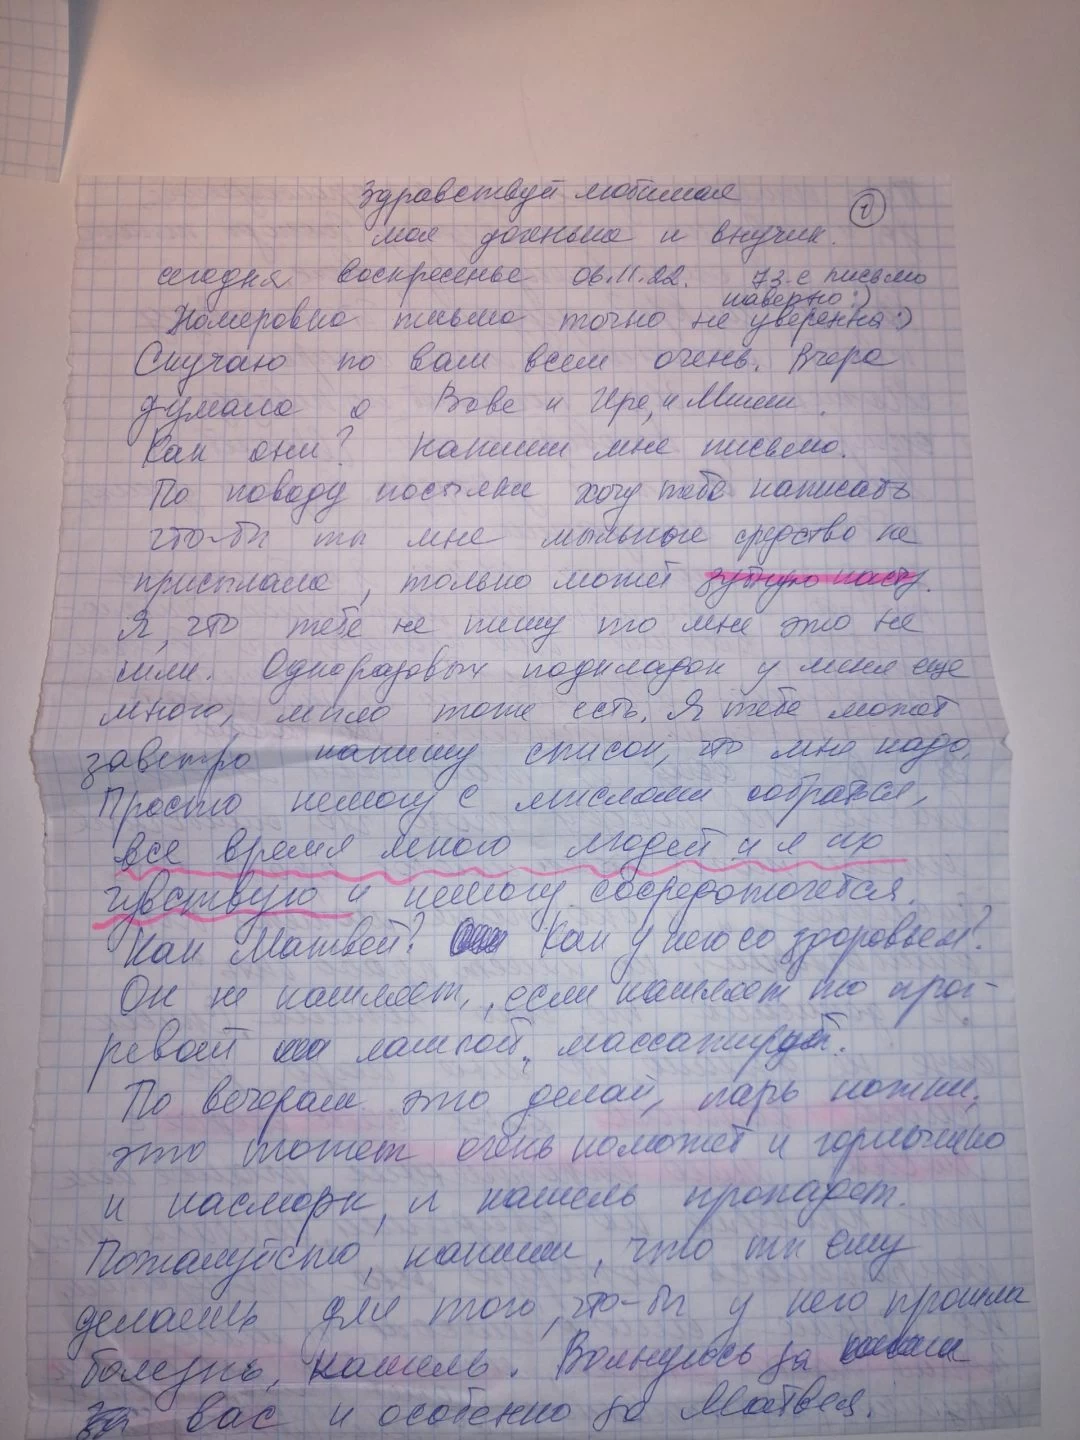 Здравствуй любимая
①
моя доченька и внучик.
сегодня воскресенье 06.11.22. 73-е письмо
наверно :)
Номеровка письма точно не уверенна :)
Скучаю по вам всем очень. Вчера
думала о Вове и Ире, и Миши.
Как они? Напиши мне письмо.
По поводу посылки хочу тебе написать
что-бы ты мне мыльные средство не
присылала, только может зубную пасту.
Я, что тебе не пишу то мне это не
шли. Одноразовых подкладок у меня еще
много, мыло тоже есть. Я тебе может
завтро напишу список, что мне надо.
Просто немогу с мыслями собратся,
все время много людей и я их
чувствую и немогу сосредоточется.
Как Матвей? Как у него со здоровьем?
Он не кашляет, если кашляет то прог-
ревай лампой, массажируй.
По вечерам это делай, парь ножки,
это может очень поможет и горлышко
и насморк, и кашель пропадет.
Пожалуйсто, напиши, что ты ему
делаешь для того, что-бы у него прошла
болезнь, кашель. Волнуюсь за
вас и особенно за Матвея.